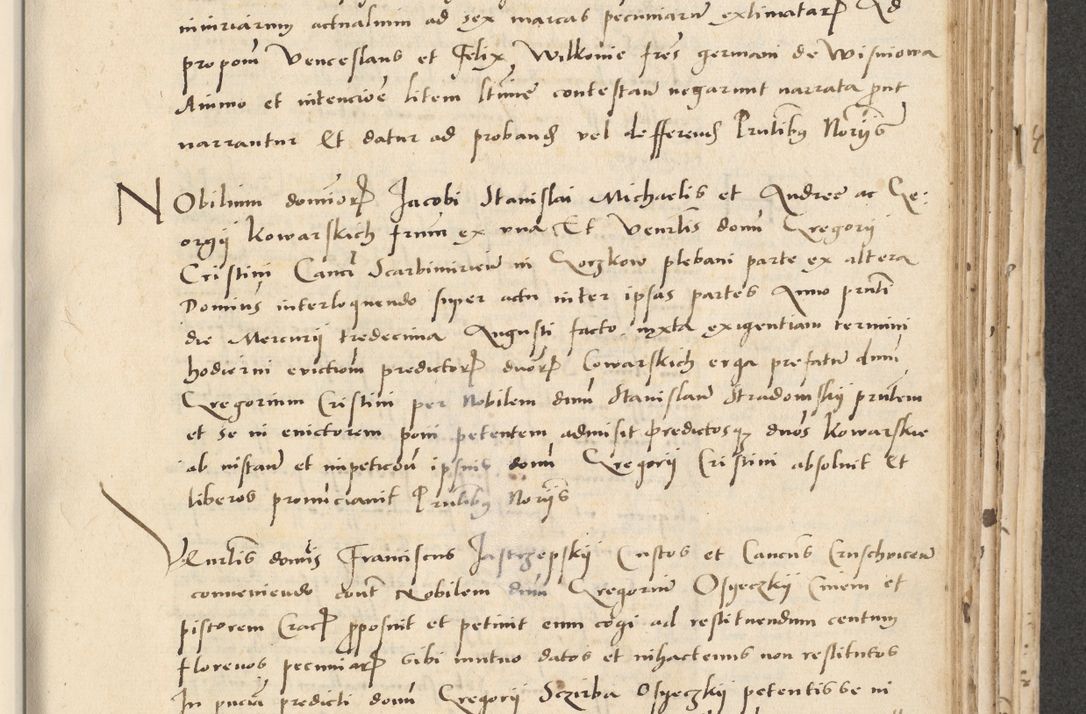 iniuriarum actualium ad sex marcas pecuniarum extimatarum Ad
propom Venceslaus et Felix Wilkonie fres germani de Wisniowa
Animo et intencione litem ltime contestan negarunt narrata prout
narrantur Et datur ad proband vel defferend Prntibus Noriis
NObilium dominorum Jacobi Stanislai Michaelis et Andree ac Ge-
orgii Kowarskich frum ex vna Et Venrlis domi Gregorii
Cristini Canci Scarbimirien in Goczkow plebani parte ex altera
Dominus interloquendo super actu inter ipsas partes Anno prnti
die Mercurii tredecima Augusti facto iuxta exigentiam termini
hodierni evictiom predictorum dnorum Cowarskich erga prefatum dnum
Gregorium Cristini per Nobilem dnum Stanislaum Stradomskij prntem
et se in evictorem poni petentem admisit Predictosque dnos Kowarskie
ab instan et impeticou ipsius domi Gregorii Cristini absoluit Et
liberos pronunciauit Prntibus Noriis
VEnrlis domis Franciscus Jastrzepskij Custos et Cancus Cruschvicen
conueniendo cont Nobilem dnum Gregorium Osyeczkij Ciuem et
pistorem Crac proposuit et petiuit eum cogi ad restituendum centum
florenos pecuniarum sibi mutuo datos et nihactenus non restitutos
In pncia predicti domi Gregorii Sczirba Osyeczkij petentis se in